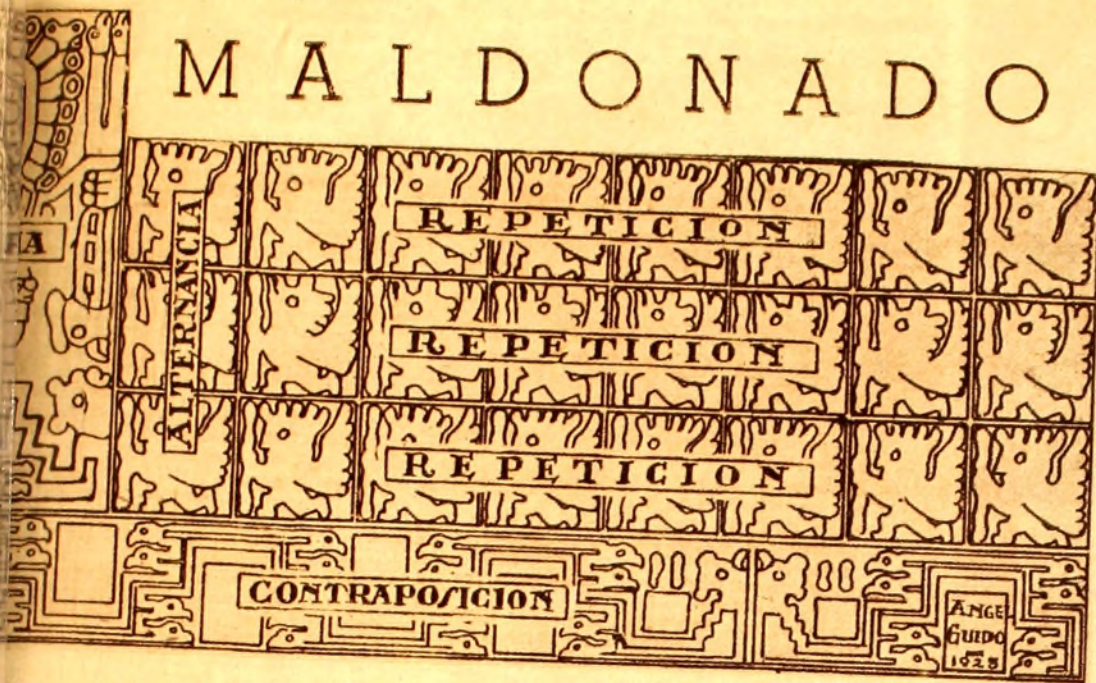 MALDONADO
HA
ALTERNANCIA
REPETICION
REPETICION
REPETICION
CONTRAPOSICION
ANGEL
GUIDO